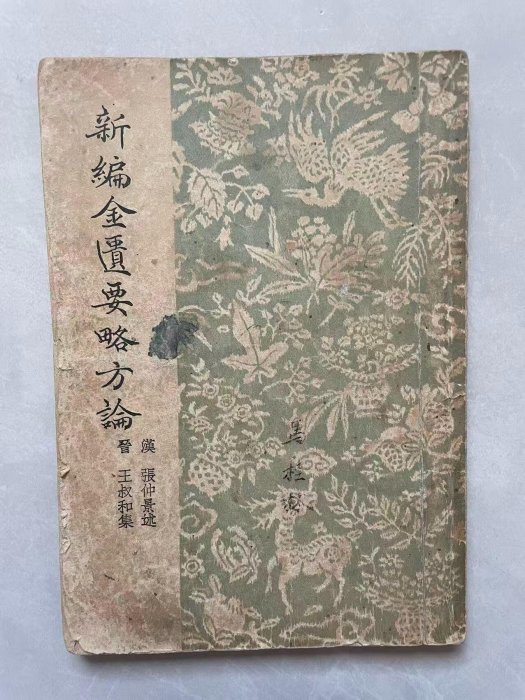 新編金匱要略方論
漢 張仲景述
晉 王叔和集